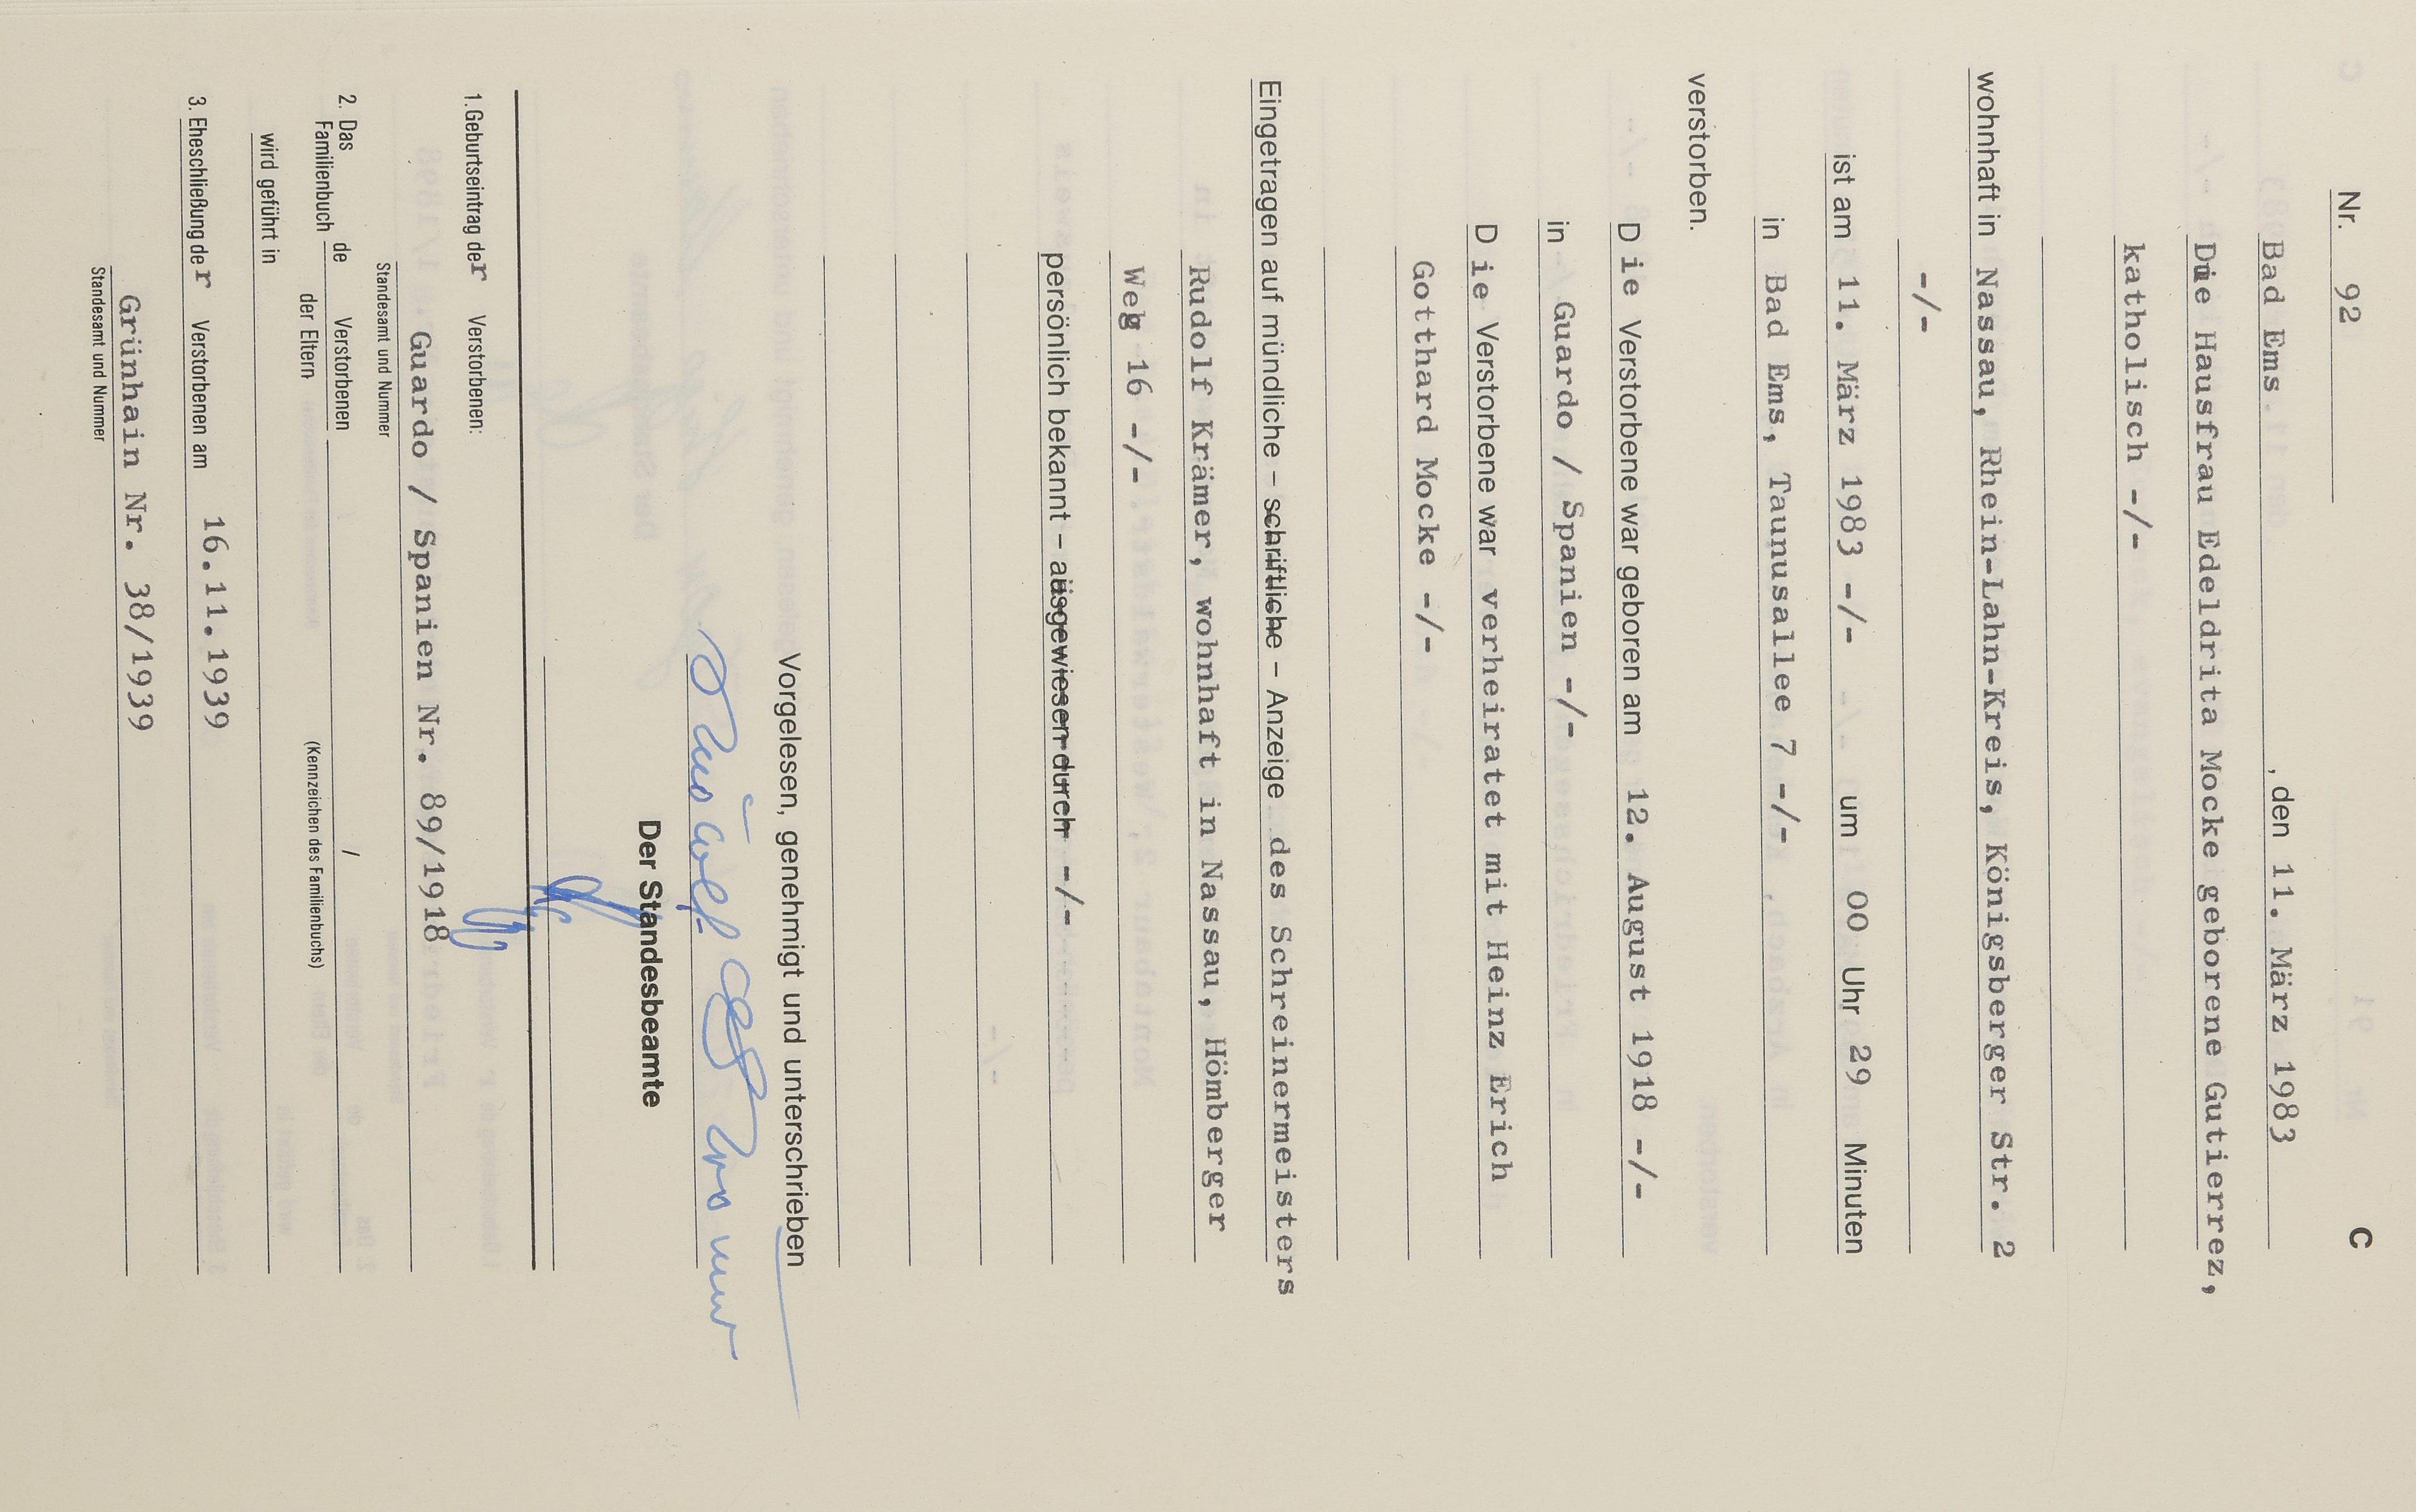 C
Nr. 92
Bad Ems, den 11. März 1983
Die Hausfrau Edeldrita Mocke geborene Gutierrez,
katholisch -/-
wohnhaft in Nassau, Rhein-Lahn-Kreis, Königsberger Str. 2
-/-
ist am 11. März 1983 -/- um 00 Uhr 29 Minuten
in Bad Ems, Taunusallee 7 -/-
verstorben.
Die Verstorbene war geboren am 12. August 1918 -/-
in Guardo / Spanien -/-
Die Verstorbene war verheiratet mit Heinz Erich
Gotthard Mocke -/-
Eingetragen auf mündliche – schriftliche – Anzeige des Schreinermeisters
Rudolf Krämer, wohnhaft in Nassau, Hömberger
Weg 16 -/-
persönlich bekannt – ausgewiesen durch -/-
Vorgelesen, genehmigt und unterschrieben
Der Standesbeamte
1. Geburtseintrag der Verstorbenen:
Guardo / Spanien Nr. 89/1918
Standesamt und Nummer
2. Das Familienbuch de Verstorbenen /
der Eltern (Kennzeichen des Familienbuchs)
wird geführt in
3. Eheschließung der Verstorbenen am 16.11.1939
Grünhain Nr. 38/1939
Standesamt und Nummer